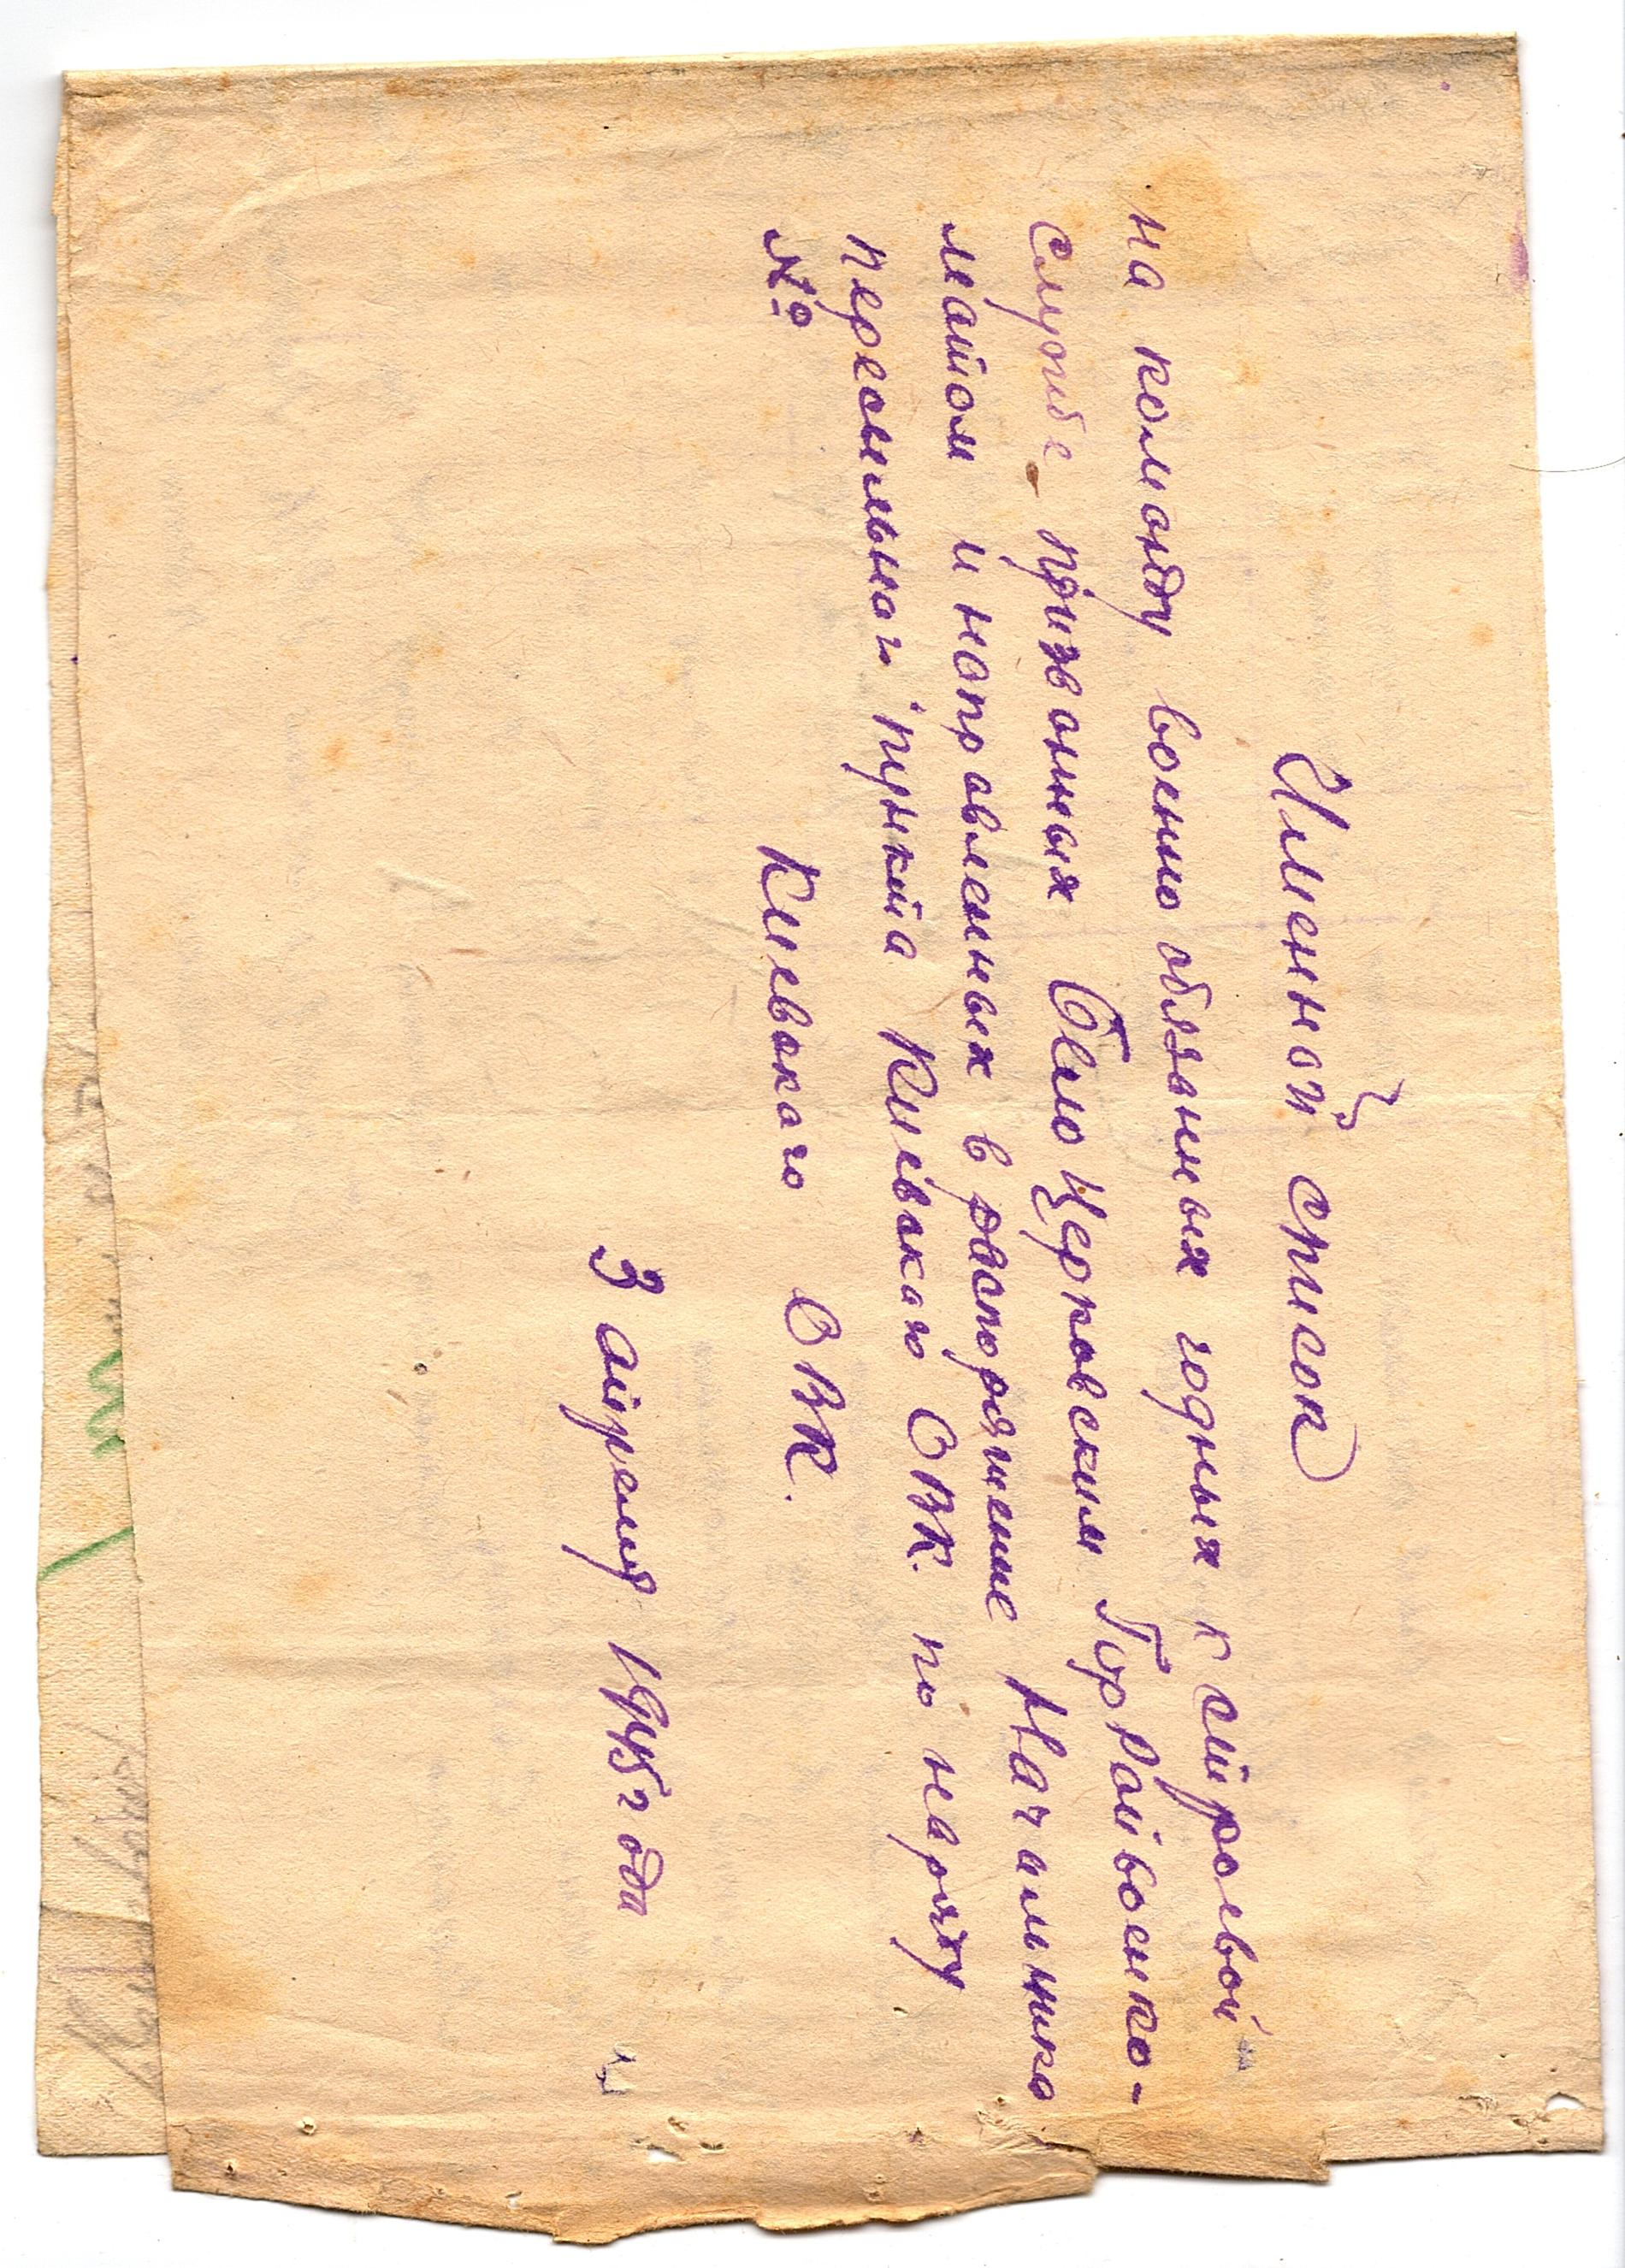 Именной список
на команду военно обязанных годных к строевой
службе призванных Бело Церковским ГорРайвоенко-
матом и направленных в распоряжение Начальника
пересыльного пункта Киевского ОВК. по наряду
№ Киевского ОВК.
3 апреля 1945 года